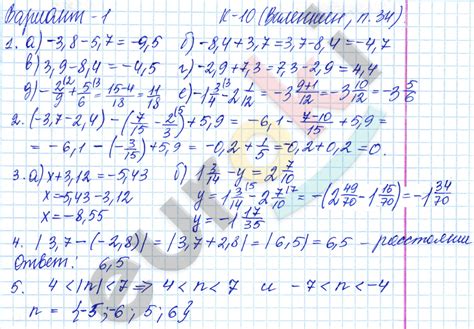 Вариант-1 К-10 (Виленкин, п.34)
1. а) -3,8-5,7=-9,5 б) -8,4+3,7=3,7-8,4=-4,7
в) 3,9-8,4=-4,5 г) -2,9+7,3=7,3-2,9=4,4
д) -2/9+5/6=15-4/18=11/18 е) -1 3/4-2 1/12=-3 9+1/12=-3 10/12=-3 5/6
2. (-3,7-2,4)-(7/15-2/3)+5,9=-6,1-7-10/15+5,9=
=-6,1-(-3/15)+5,9=-0,2+1/5=-0,2+0,2=0.
3. а) x+3,12=-5,43 б) 1 3/14-y=2 7/10
x=-5,43-3,12 y=1 3/14-2 7/10=-(2 49/70-1 15/70)=-1 34/70
x=-8,55 y=-1 17/35
4. |3,7-(-2,8)|=|3,7+2,8|=|6,5|=6,5 - расстояние
Ответ: 6,5
5. 4<|n|<7 => 4<n<7 и -7<n<-4
n={-5;-6;5;6}
euroki